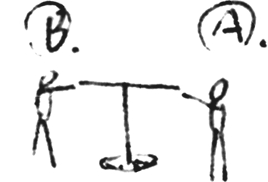 B. A.